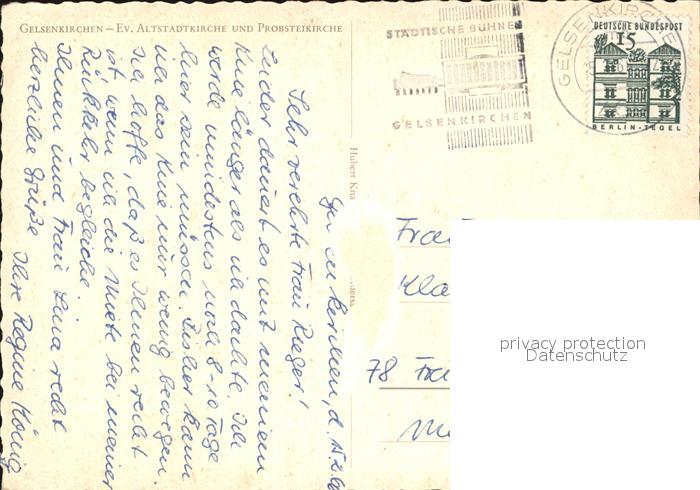 GELSENKIRCHEN – EV. ALTSTADTKIRCHE UND PROBSTEIKIRCHE
STÄDTISCHE BÜHNEN
GELSENKIRCHEN
GELSENKIRCHEN
DEUTSCHE BUNDESPOST
15
BERLIN-TEGEL
Hubert Kna
Gelsenkirchen, d.
Sehr verehrte Frau Rieger!
Leider dauert es mit meinem
Knie länger als ich dachte. Ich
werde mindestens noch 8-10 Tage
hier sein müssen. Bisher kann
ich das Knie nur wenig bewegen.
Ich hoffe, daß es Ihnen recht
ist wenn ich die Miete bei meiner
Rückkehr begleiche.
Ihnen und Frau Lina recht
herzliche Grüße
Ihre Regine König
78
privacy protection
Datenschutz